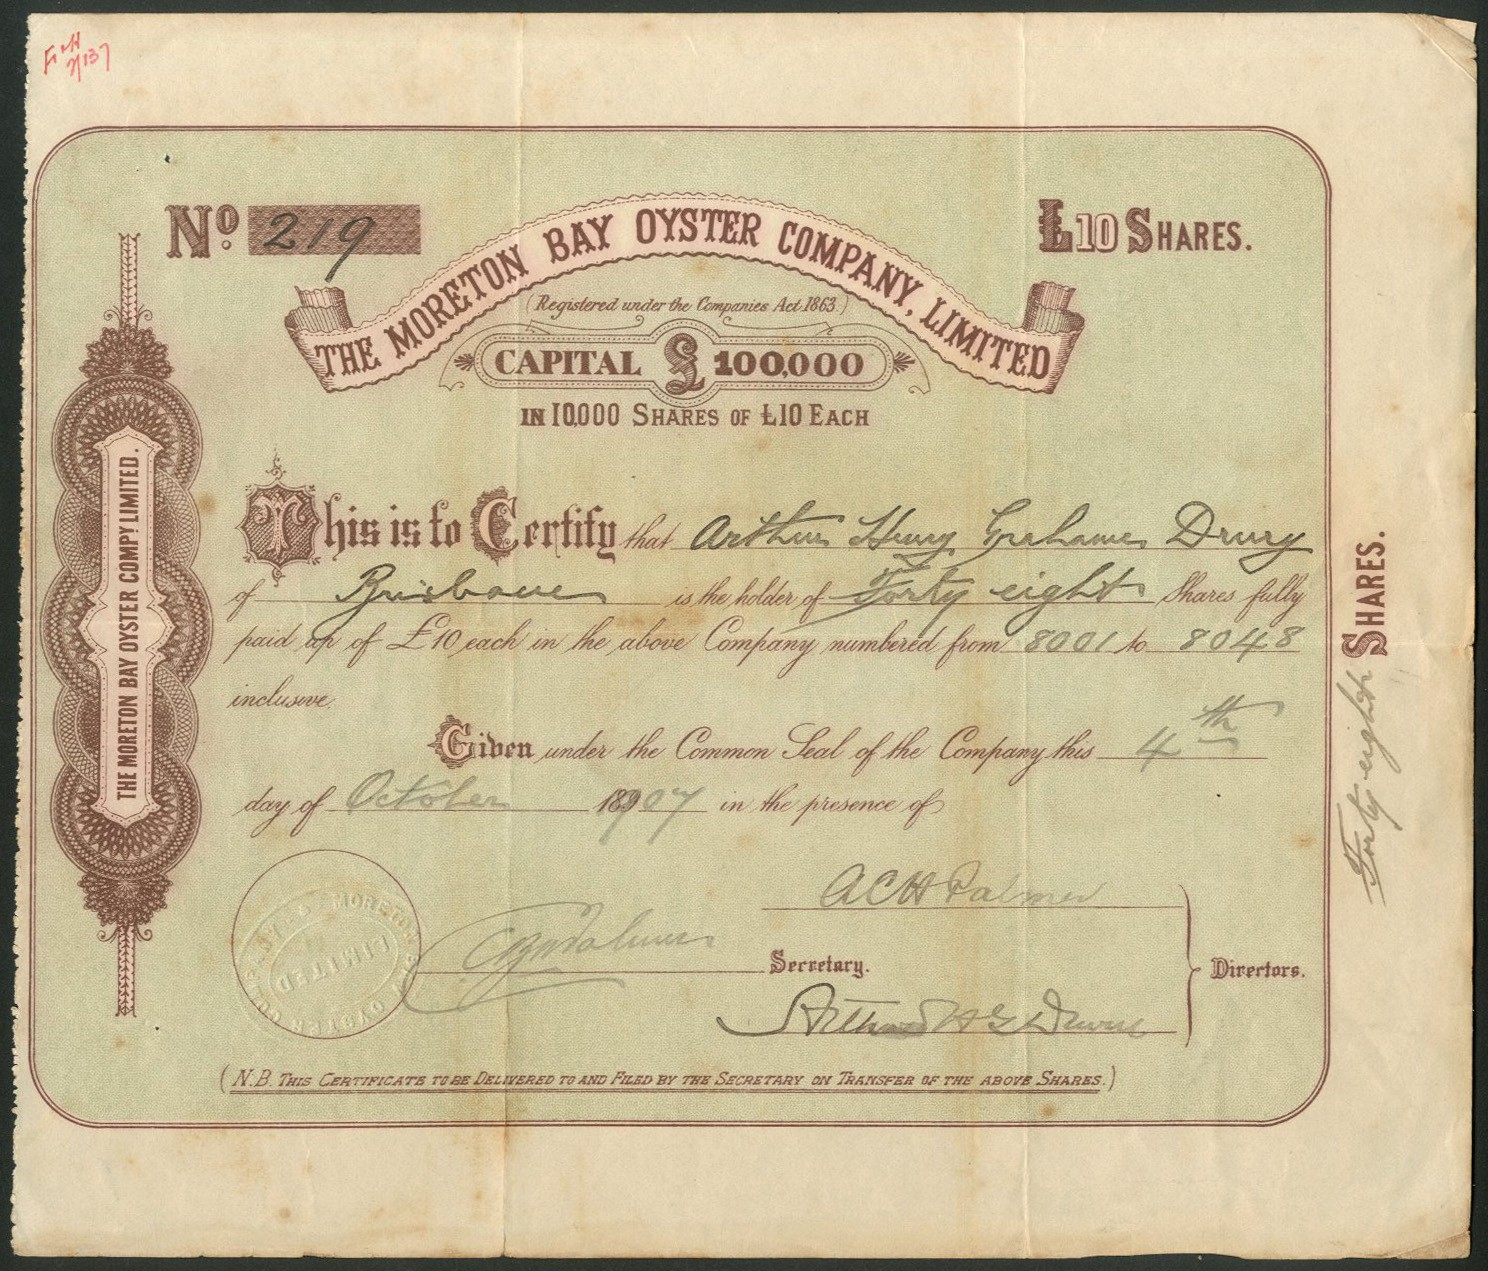 No. 219
£10 SHARES.
THE MORETON BAY OYSTER COMPANY, LIMITED
(Registered under the Companies Act 1863.)
CAPITAL £100,000
IN 10,000 SHARES OF £10 EACH
THE MORETON BAY OYSTER COMPY LIMITED.
This is to Certify that Arthur Henry Grahame Drury
of Brisbane is the holder of Forty eight Shares fully
paid up of £10 each in the above Company numbered from 8001 to 8048
inclusive.
Given under the Common Seal of the Company this 4th
day of October 1907 in the presence of
Forty eight SHARES.
MORETON BAY OYSTER COMPANY
LIMITED
A C H Palmer
Secretary.
Directors.
Arthur H G Drury
(N.B. THIS CERTIFICATE TO BE DELIVERED TO AND FILED BY THE SECRETARY ON TRANSFER OF THE ABOVE SHARES.)